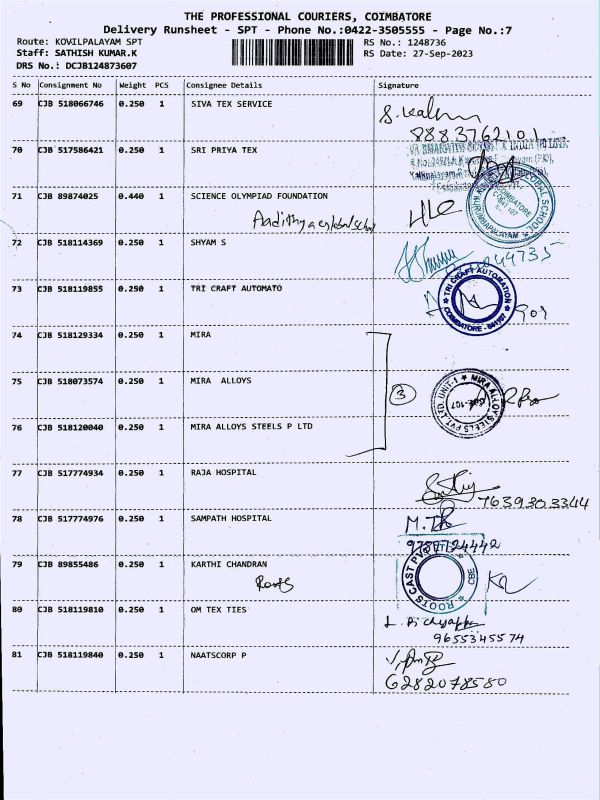 THE PROFESSIONAL COURIERS, COIMBATORE
Delivery Runsheet - SPT - Phone No.:0422-3505555 - Page No.:7
Route: KOVILPALAYAM SPT
Staff: SATHISH KUMAR.K
DRS No.: DCJB124873607
RS No.: 1248736
RS Date: 27-Sep-2023
S No Consignment No Weight PCS Consignee Details Signature
69 CJB 518066746 0.250 1 SIVA TEX SERVICE
8883762101
70 CJB 517586421 0.250 1 SRI PRIYA TEX
71 CJB 89874025 0.440 1 SCIENCE OLYMPIAD FOUNDATION
72 CJB 518114369 0.250 1 SHYAM S
73 CJB 518119855 0.250 1 TRI CRAFT AUTOMATO
TRI CRAFT AUTOMATION
COIMBATORE - 641107
74 CJB 518129334 0.250 1 MIRA
75 CJB 518073574 0.250 1 MIRA ALLOYS
3
MIRA ALLOY STEELS PVT LTD. UNIT-1
CBE-107
76 CJB 518120040 0.250 1 MIRA ALLOYS STEELS P LTD
77 CJB 517774934 0.250 1 RAJA HOSPITAL
7639303344
78 CJB 517774976 0.250 1 SAMPATH HOSPITAL
79 CJB 89855486 0.250 1 KARTHI CHANDRAN
Roots
ROOTS CAST PVT
CBE
80 CJB 518119810 0.250 1 OM TEX TIES
9655345574
81 CJB 518119840 0.250 1 NAATSCORP P
6282078580